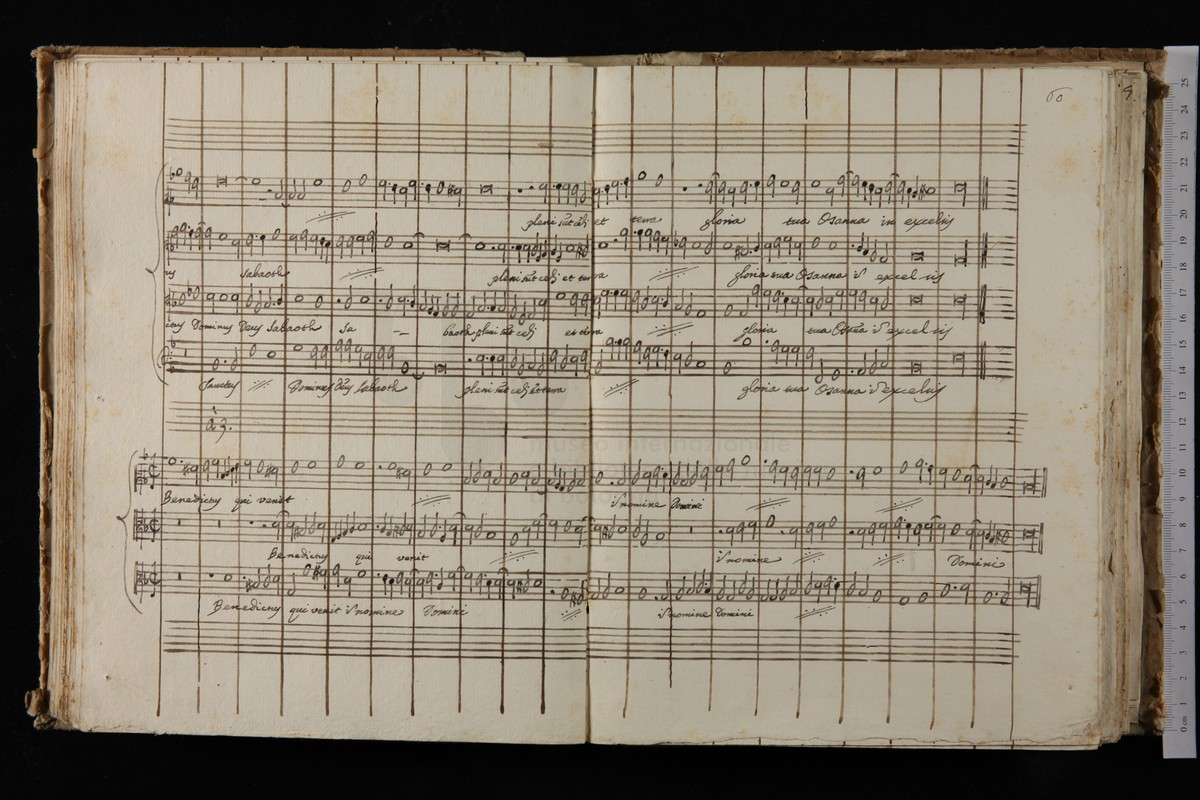 60
pleni sūt celi et terra gloria tua Osanna in excelsis
us Sabaoth pleni sūt celi et terra gloria tua Osanna ī excelsis
ctus Dominus Deus Sabaoth Sa baoth pleni sūt celi et terra gloria tua Osāna ī excelsis
Sanctus Dominus Deus Sabaoth pleni sūt celi et terra gloria tua Osanna ī excelsis
à 3.
museo internazionale
Benedictus qui venit ī nomine Domini
Benedictus qui venit ī nomine Domini
Benedictus qui venit ī nomine Domini ī nomine Domini
0 cm 1 2 3 4 5 6 7 8 9 10 11 12 13 14 15 16 17 18 19 20 21 22 23 24 25